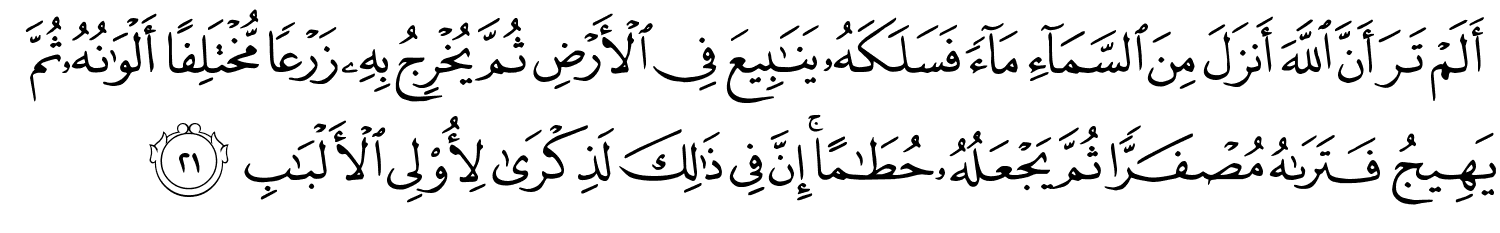 أَلَمۡ تَرَ أَنَّ ٱللَّهَ أَنزَلَ مِنَ ٱلسَّمَآءِ مَآءٗ فَسَلَكَهُۥ يَنَٰبِيعَ فِي ٱلۡأَرۡضِ ثُمَّ يُخۡرِجُ بِهِۦ زَرۡعٗا مُّخۡتَلِفًا أَلۡوَٰنُهُۥ ثُمَّ
يَهِيجُ فَتَرَىٰهُ مُصۡفَرّٗا ثُمَّ يَجۡعَلُهُۥ حُطَٰمًاۚ إِنَّ فِي ذَٰلِكَ لَذِكۡرَىٰ لِأُوْلِي ٱلۡأَلۡبَٰبِ ٢١